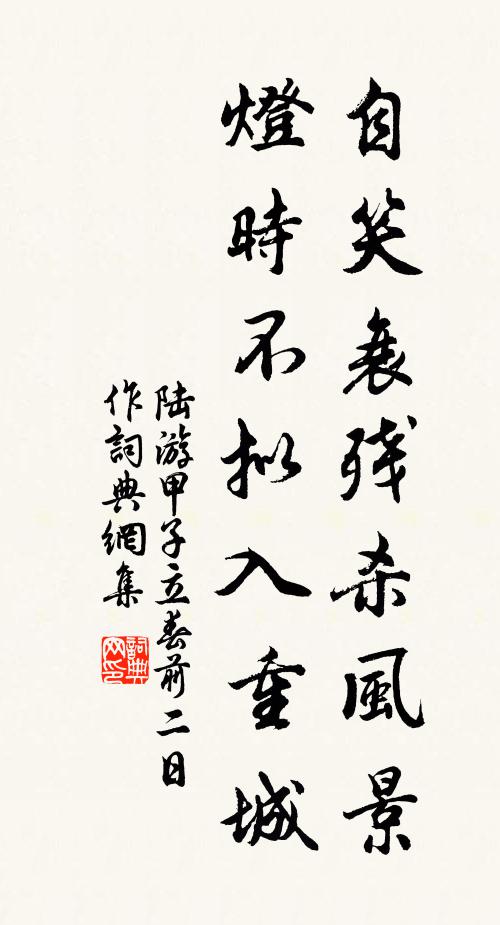 自笑衰残杀風景
燈時不拟入重城
陆游甲子立春前二日
作詞典網集
詞典网印